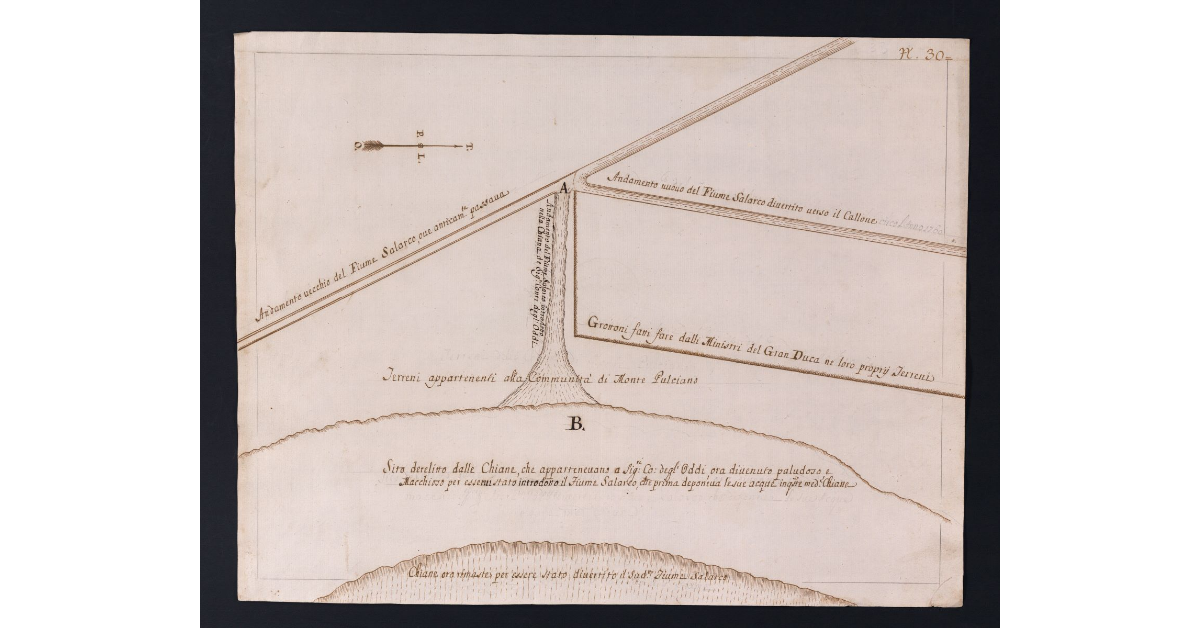 N. 30
P.
O. T.
L.
Andamento nuovo del Fiume Salarco divertito verso il Callone
A
Andamento vecchio del Fiume Salarco, oue anticam.te passaua
Andamento del Fiume Salarco introdotto
nella Chiana de Sig.ri Conti degl' Oddi.
Grottoni fatti fare dalli Ministri del Gran Duca ne loro proprij Terreni
Terreni appartenenti alla Communità di Monte Pulciano
B.
Sito derelitto dalle Chiane, che apparteneuano a Sig.ri Co: degl' Oddi ora diuenuto paludoso, e
Macchioso per esserui stato introdotto il Fiume Salarco, che prima deponeua le sue acque in med.e Chiane
Chiane ora rimaste per essere stato diuertito il Sud.o Fiume Salarco